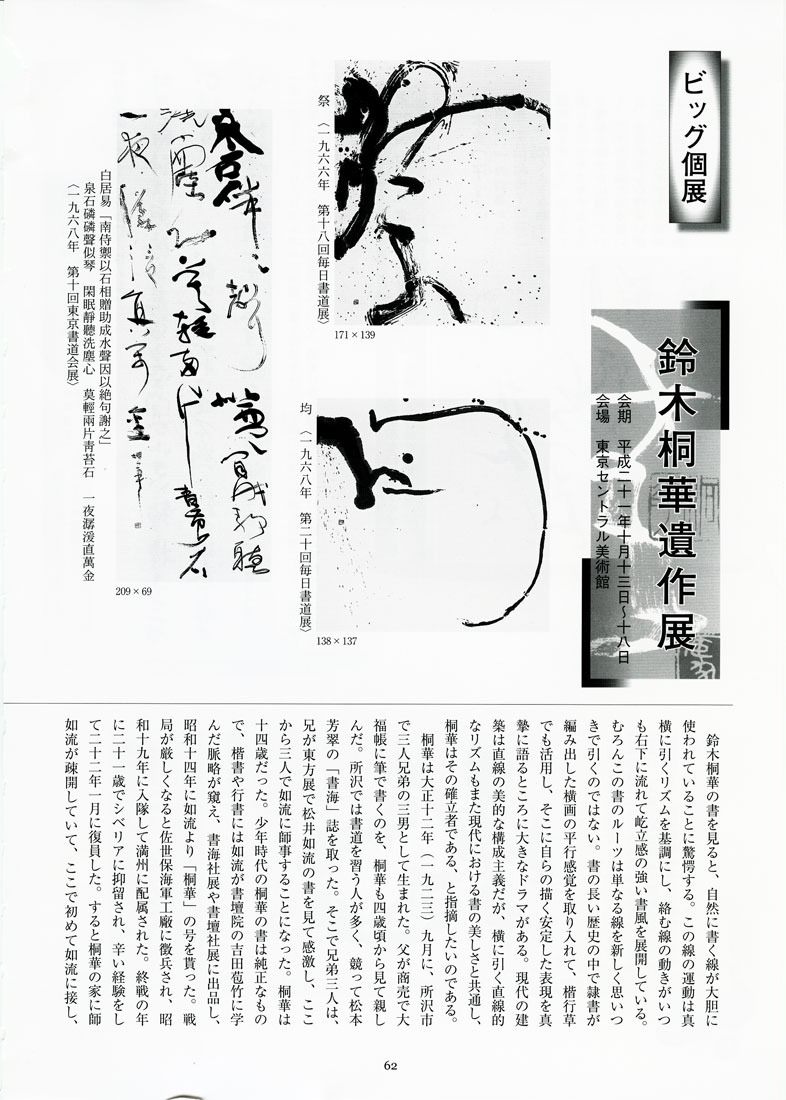 ビッグ個展
鈴木桐華遺作展
会期　平成二十一年十月十三日〜十八日
会場　東京セントラル美術館
祭　（一九六六年　第十八回毎日書道展）
171 × 139
均　（一九六八年　第二十回毎日書道展）
138 × 137
白居易「南侍禦以石相贈助成水聲因以絶句謝之」
泉石磷磷聲似琴　閑眠靜聽洗塵心　莫輕兩片靑苔石　一夜潺湲直萬金
（一九六八年　第十回東京書道会展）
209 × 69
鈴木桐華の書を見ると、自然に書く線が大胆に
使われていることに驚愕する。この線の運動は真
横に引くリズムを基調にし、絡む線の動きがいつ
も右下に流れて屹立感の強い書風を展開している。
むろんこの書のルーツは単なる線を新しく思いつ
きで引くのではない。書の長い歴史の中で隷書が
編み出した横画の平行感覚を取り入れて、楷行草
でも活用し、そこに自らの描く安定した表現を真
摯に語るところに大きなドラマがある。現代の建
築は直線の美的な構成主義だが、横に引く直線的
なリズムもまた現代における書の美しさと共通し、
桐華はその確立者である、と指摘したいのである。
桐華は大正十二年（一九二三）九月に、所沢市
で三人兄弟の三男として生まれた。父が商売で大
福帳に筆で書くのを、桐華も四歳頃から見て親し
んだ。所沢では書道を習う人が多く、競って松本
芳翠の「書海」誌を取った。そこで兄弟三人は、
兄が東方展で松井如流の書を見て感激し、ここ
から三人で如流に師事することになった。桐華は
十四歳だった。少年時代の桐華の書は純正なもの
で、楷書や行書には如流が書壇院の吉田苞竹に学
んだ脈略が窺え、書海社展や書壇社展に出品し、
昭和十四年に如流より「桐華」の号を貰った。戦
局が厳しくなると佐世保海軍工廠に徴兵され、昭
和十九年に入隊して満州に配属された。終戦の年
に二十一歳でシベリアに抑留され、辛い経験をし
て二十二年一月に復員した。すると桐華の家に師
如流が疎開していて、ここで初めて如流に接し、
62